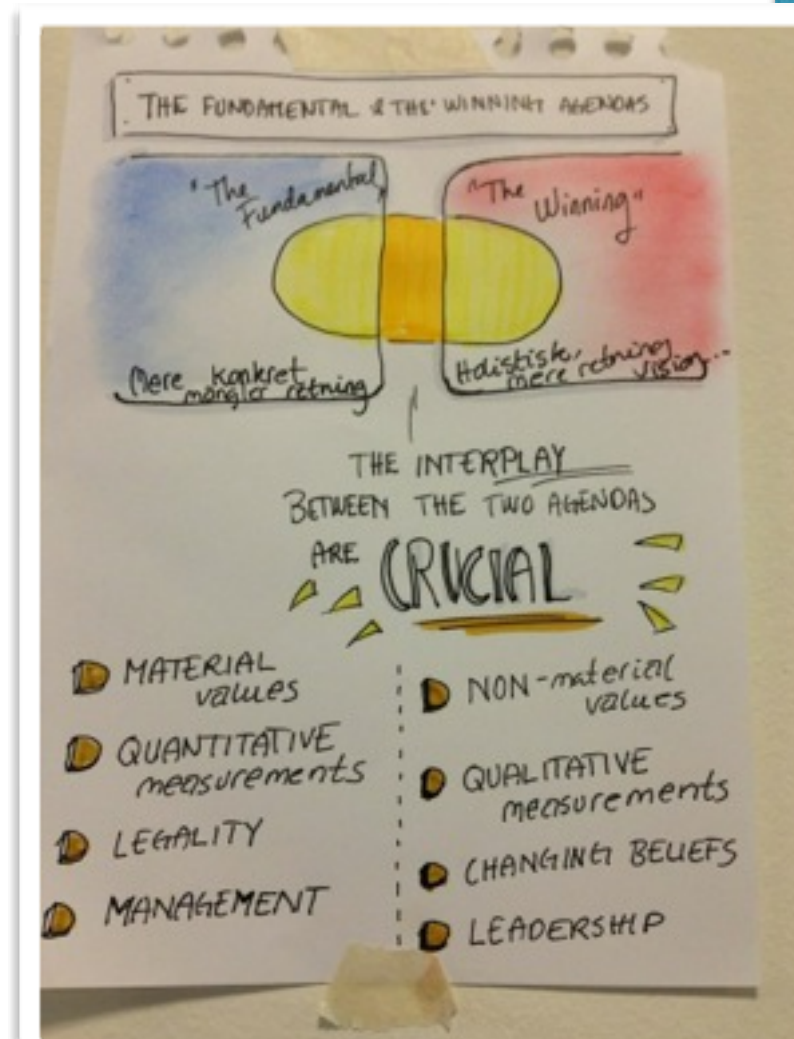 THE FUNDAMENTAL & THE WINNING AGENDAS
"The
Fundamental"
Mere konkret
mangler retning
"The
Winning"
Holistisk,
mere retning
vision...
THE INTERPLAY
BETWEEN THE TWO AGENDAS
ARE CRUCIAL
MATERIAL
values
QUANTITATIVE
measurements
LEGALITY
MANAGEMENT
NON-material
values
QUALITATIVE
measurements
CHANGING BELIEFS
LEADERSHIP